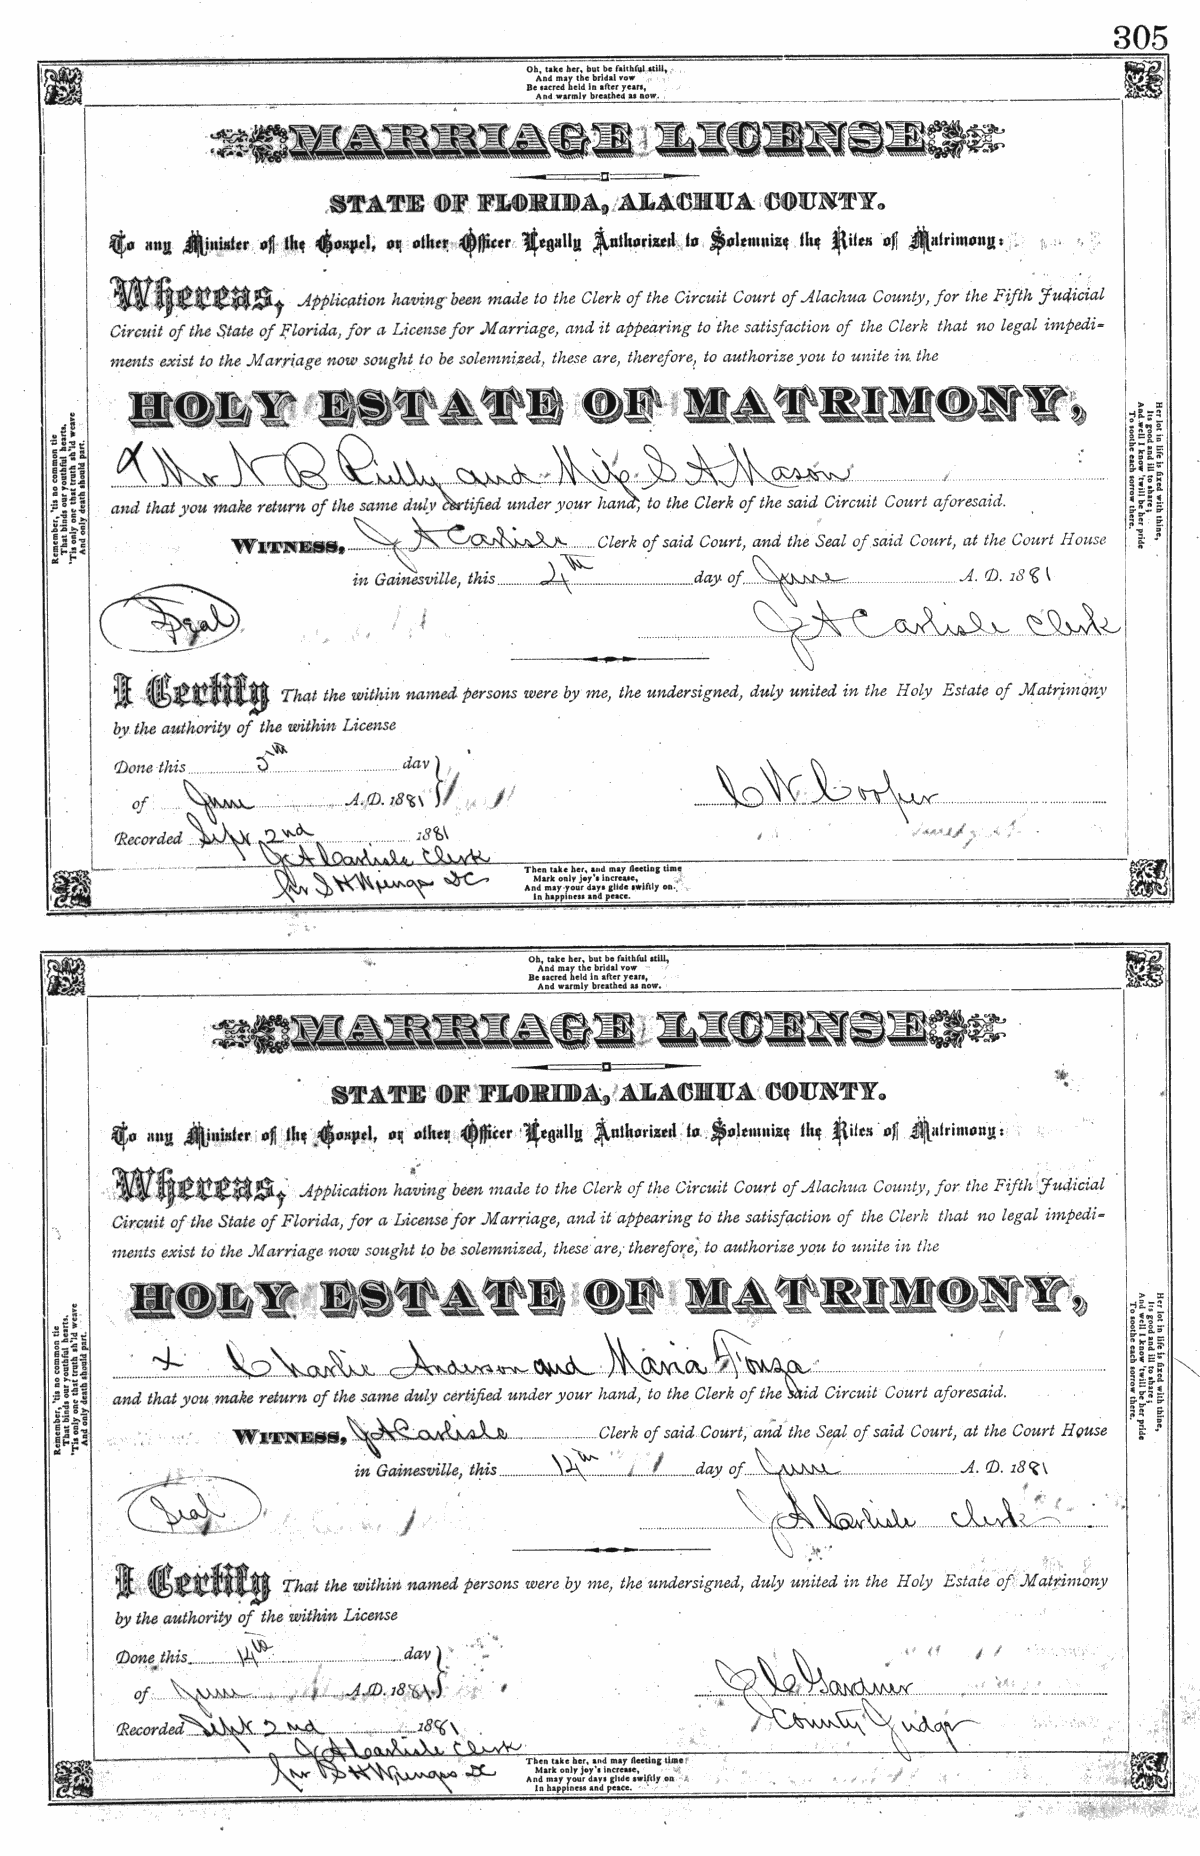 305
Oh, take her, but be faithful still,
And may the bridal vow
Be sacred held in after years,
And warmly breathed as now.
MARRIAGE LICENSE
STATE OF FLORIDA, ALACHUA COUNTY.
To any Minister of the Gospel, or other Officer Legally Authorized to Solemnize the Rites of Matrimony:
Whereas, Application having been made to the Clerk of the Circuit Court of Alachua County, for the Fifth Judicial
Circuit of the State of Florida, for a License for Marriage, and it appearing to the satisfaction of the Clerk that no legal impedi-
ments exist to the Marriage now sought to be solemnized, these are, therefore, to authorize you to unite in the
HOLY ESTATE OF MATRIMONY,
X Mr N B and Miss S A Mason
and that you make return of the same duly certified under your hand, to the Clerk of the said Circuit Court aforesaid.
WITNESS, J A Carlisle Clerk of said Court, and the Seal of said Court, at the Court House
in Gainesville, this 4th day of June A. D. 1881
Seal
J A Carlisle Clerk
I Certify That the within named persons were by me, the undersigned, duly united in the Holy Estate of Matrimony
by the authority of the within License
Done this 5th day
of June A.D. 1881
C W Cooper
Recorded Sept 2nd 1881
J A Carlisle Clerk
S H Wienges DC
Then take her, and may fleeting time
Mark only joy's increase,
And may your days glide swiftly on
In happiness and peace.
Remember, 'tis no common tie
That binds our youthful hearts,
'Tis only one that truth sh'ld weave
And only death should part.
Her lot in life is fixed with thine,
Its good and ill to share;
And well I know 'twill be her pride
To soothe each sorrow there.
Oh, take her, but be faithful still,
And may the bridal vow
Be sacred held in after years,
And warmly breathed as now.
MARRIAGE LICENSE
STATE OF FLORIDA, ALACHUA COUNTY.
To any Minister of the Gospel, or other Officer Legally Authorized to Solemnize the Rites of Matrimony:
Whereas, Application having been made to the Clerk of the Circuit Court of Alachua County, for the Fifth Judicial
Circuit of the State of Florida, for a License for Marriage, and it appearing to the satisfaction of the Clerk that no legal impedi-
ments exist to the Marriage now sought to be solemnized, these are, therefore, to authorize you to unite in the
HOLY ESTATE OF MATRIMONY,
X Charlie Anderson and Maria
and that you make return of the same duly certified under your hand, to the Clerk of the said Circuit Court aforesaid.
WITNESS, J A Carlisle Clerk of said Court, and the Seal of said Court, at the Court House
in Gainesville, this 14th day of June A. D. 1881
Seal
J A Carlisle Clerk
I Certify That the within named persons were by me, the undersigned, duly united in the Holy Estate of Matrimony
by the authority of the within License
Done this 14th day
of June A.D. 1881
J C Gardner
County Judge
Recorded Sept 2nd 1881
J A Carlisle Clerk
S H Wienges DC
Then take her, and may fleeting time
Mark only joy's increase,
And may your days glide swiftly on
In happiness and peace.
Remember, 'tis no common tie
That binds our youthful hearts,
'Tis only one that truth sh'ld weave
And only death should part.
Her lot in life is fixed with thine,
Its good and ill to share;
And well I know 'twill be her pride
To soothe each sorrow there.